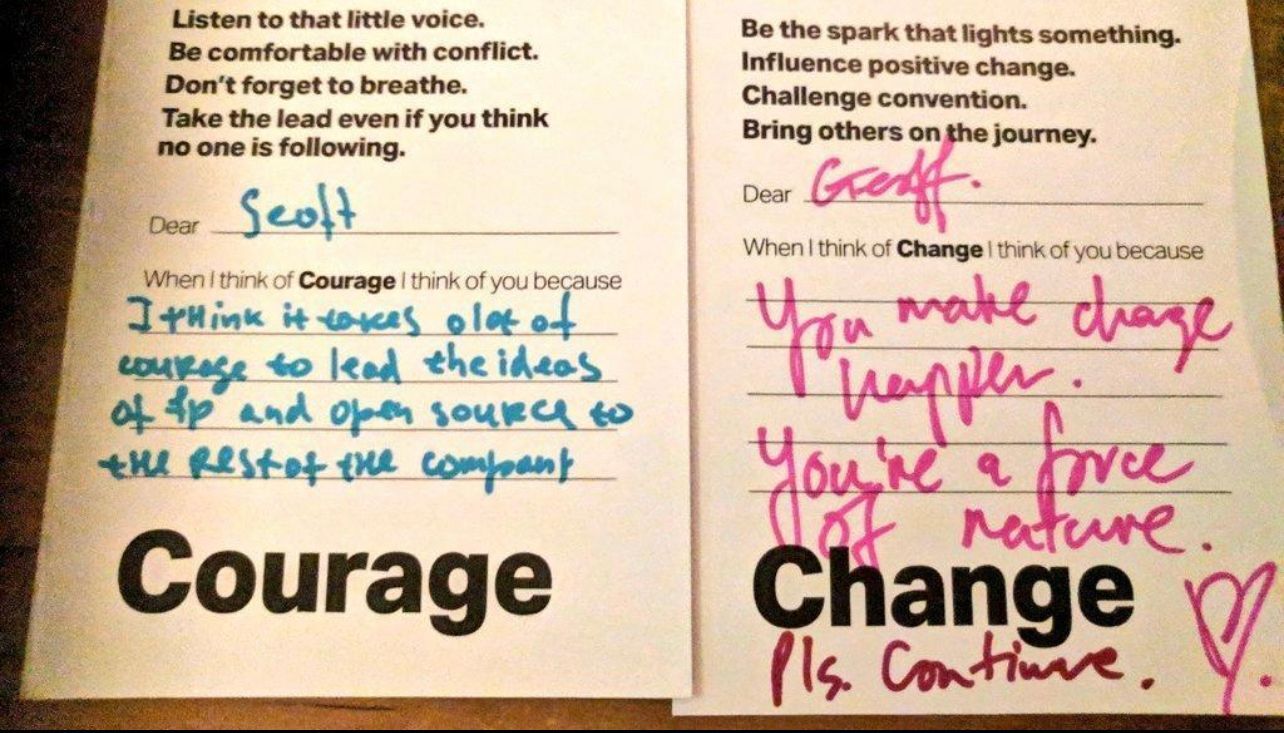 Listen to that little voice.
Be comfortable with conflict.
Don't forget to breathe.
Take the lead even if you think
no one is following.
Dear Geoff
When I think of Courage I think of you because
I think it takes a lot of
courage to lead the ideas
of fp and open source to
the rest of the company
Courage
Be the spark that lights something.
Influence positive change.
Challenge convention.
Bring others on the journey.
Dear Geoff.
When I think of Change I think of you because
You make change
happen.
You're a force
of nature.
Change
Pls. Continue.